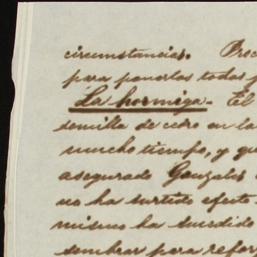 circumstancias. Proc
para ponerlas todas p
La hormiga. El
semilla de cedro en la
mucho tiempo, y qu
asegurado Gonzales
no ha surtido efecto
mismo ha sucedido
sembrar para refor